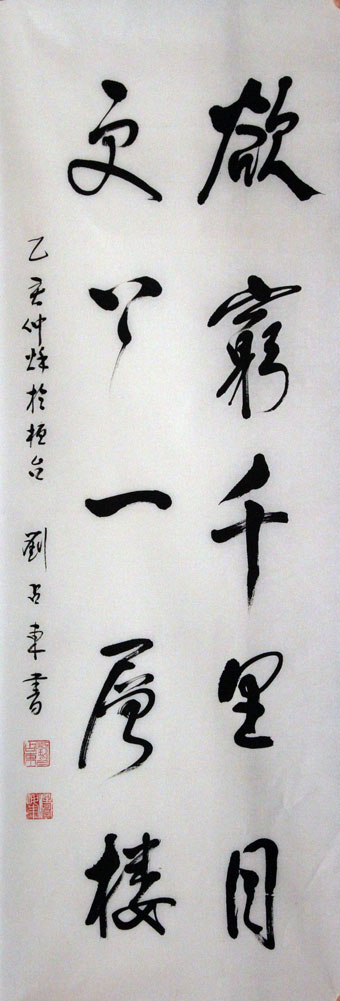 欲窮千里目
更上一層楼
乙亥仲秌於桓台
劉占東書